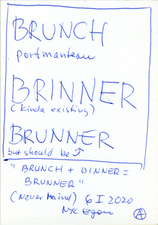 BRUNCH
portmanteau
BRINNER
(kinda existing)
BRUNNER
but should be
"BRUNCH + DINNER =
BRUNNER"
(Never Mind) 6 I 2020
NYC
A